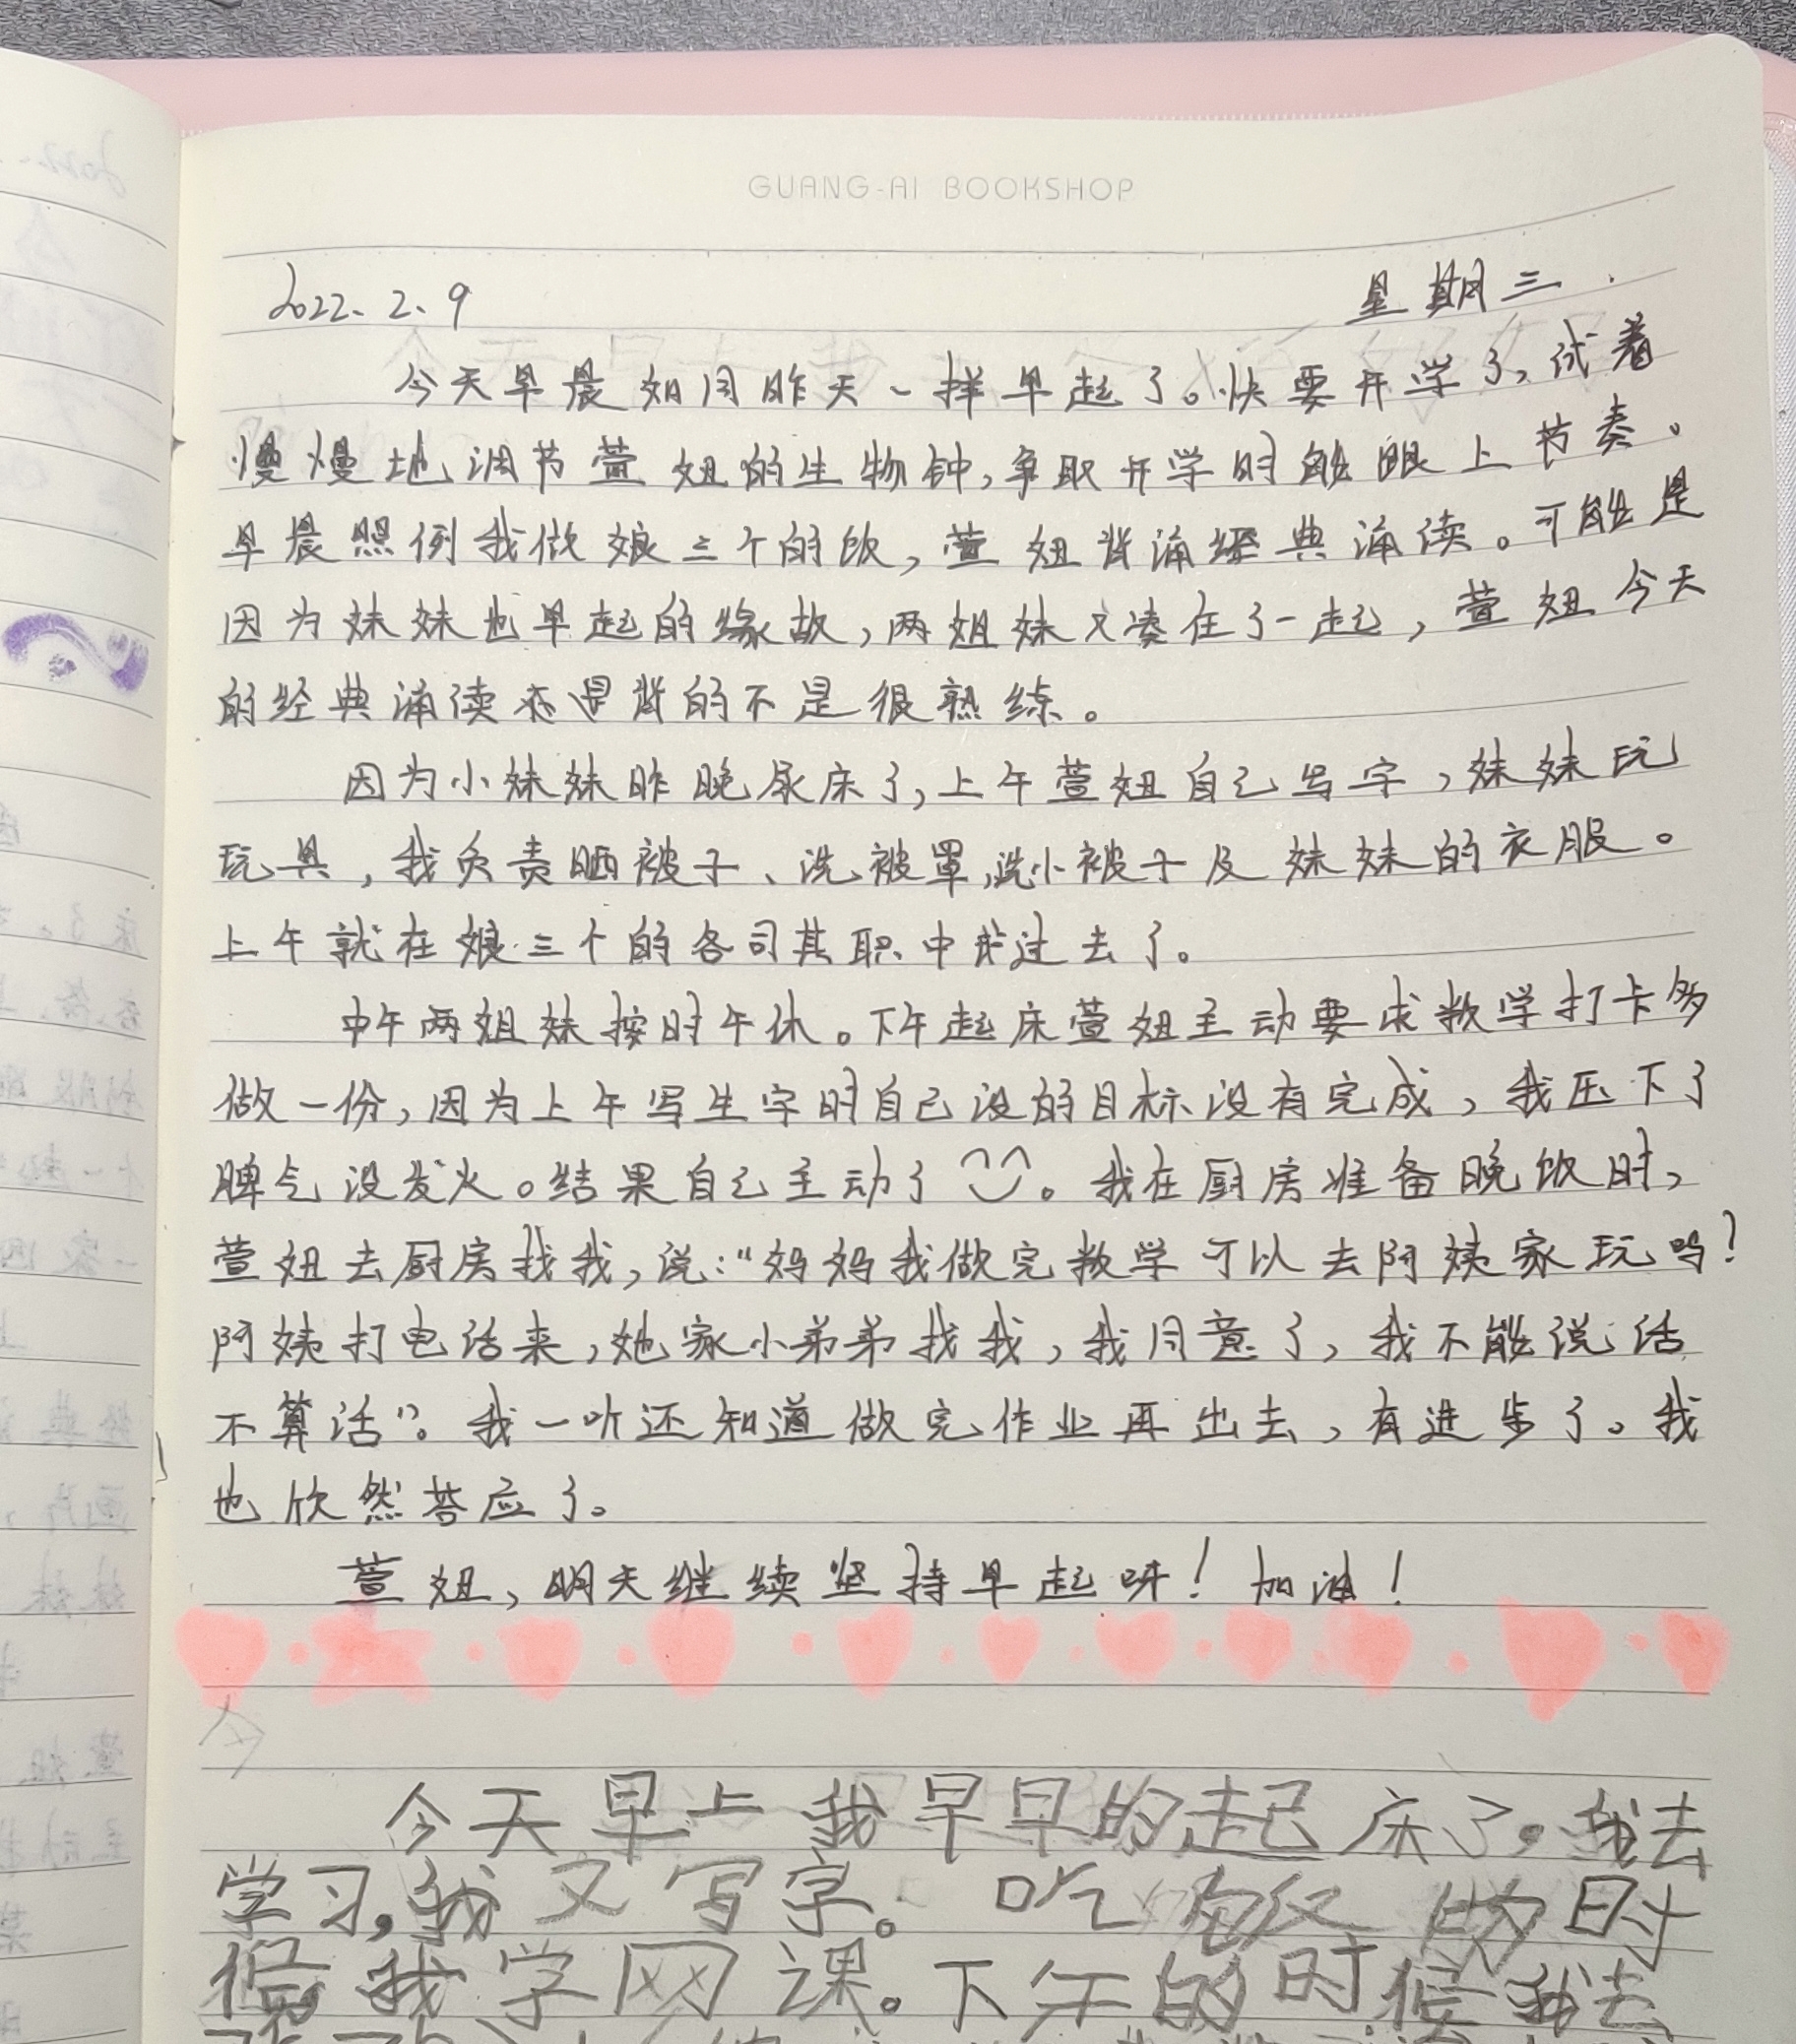 GUANG-AI BOOKSHOP
2022、2、9 星期三
今天早晨如同昨天一样早起了。快要开学了,试着
慢慢地调节萱妞的生物钟,争取开学时能跟上节奏。
早晨照例我做娘三个的饭,萱妞背诵经典诵读。可能是
因为妹妹也早起的缘故,两姐妹又凑在了一起,萱妞今天
的经典诵读还是背的不是很熟练。
因为小妹妹昨晚尿床了,上午萱妞自己写字,妹妹玩
玩具,我负责晒被子、洗被罩,洗小被子及妹妹的衣服。
上午就在娘三个的各司其职中度过去了。
中午两姐妹按时午休。下午起床萱妞主动要求数学打卡多
做一份,因为上午写生字时自己设的目标没有完成,我压下了
脾气没发火。结果自己主动了。我在厨房准备晚饭时,
萱妞去厨房找我,说:“妈妈我做完数学可以去阿姨家玩吗?
阿姨打电话来,她家小弟弟找我,我同意了,我不能说话
不算话”。我一听还知道做完作业再出去,有进步了。我
也欣然答应了。
萱妞,明天继续坚持早起呀!加油!
今天早上我早早的起床了。我去
学习,我又写字。吃 的时
候我学网课。下午的时候我去